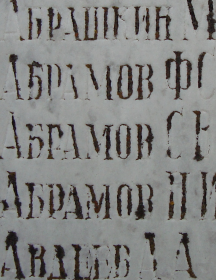 АБРАШКИН
АБРАМОВ Ф
АБРАМОВ С
АБРАМОВ
АВДЕЕВ А